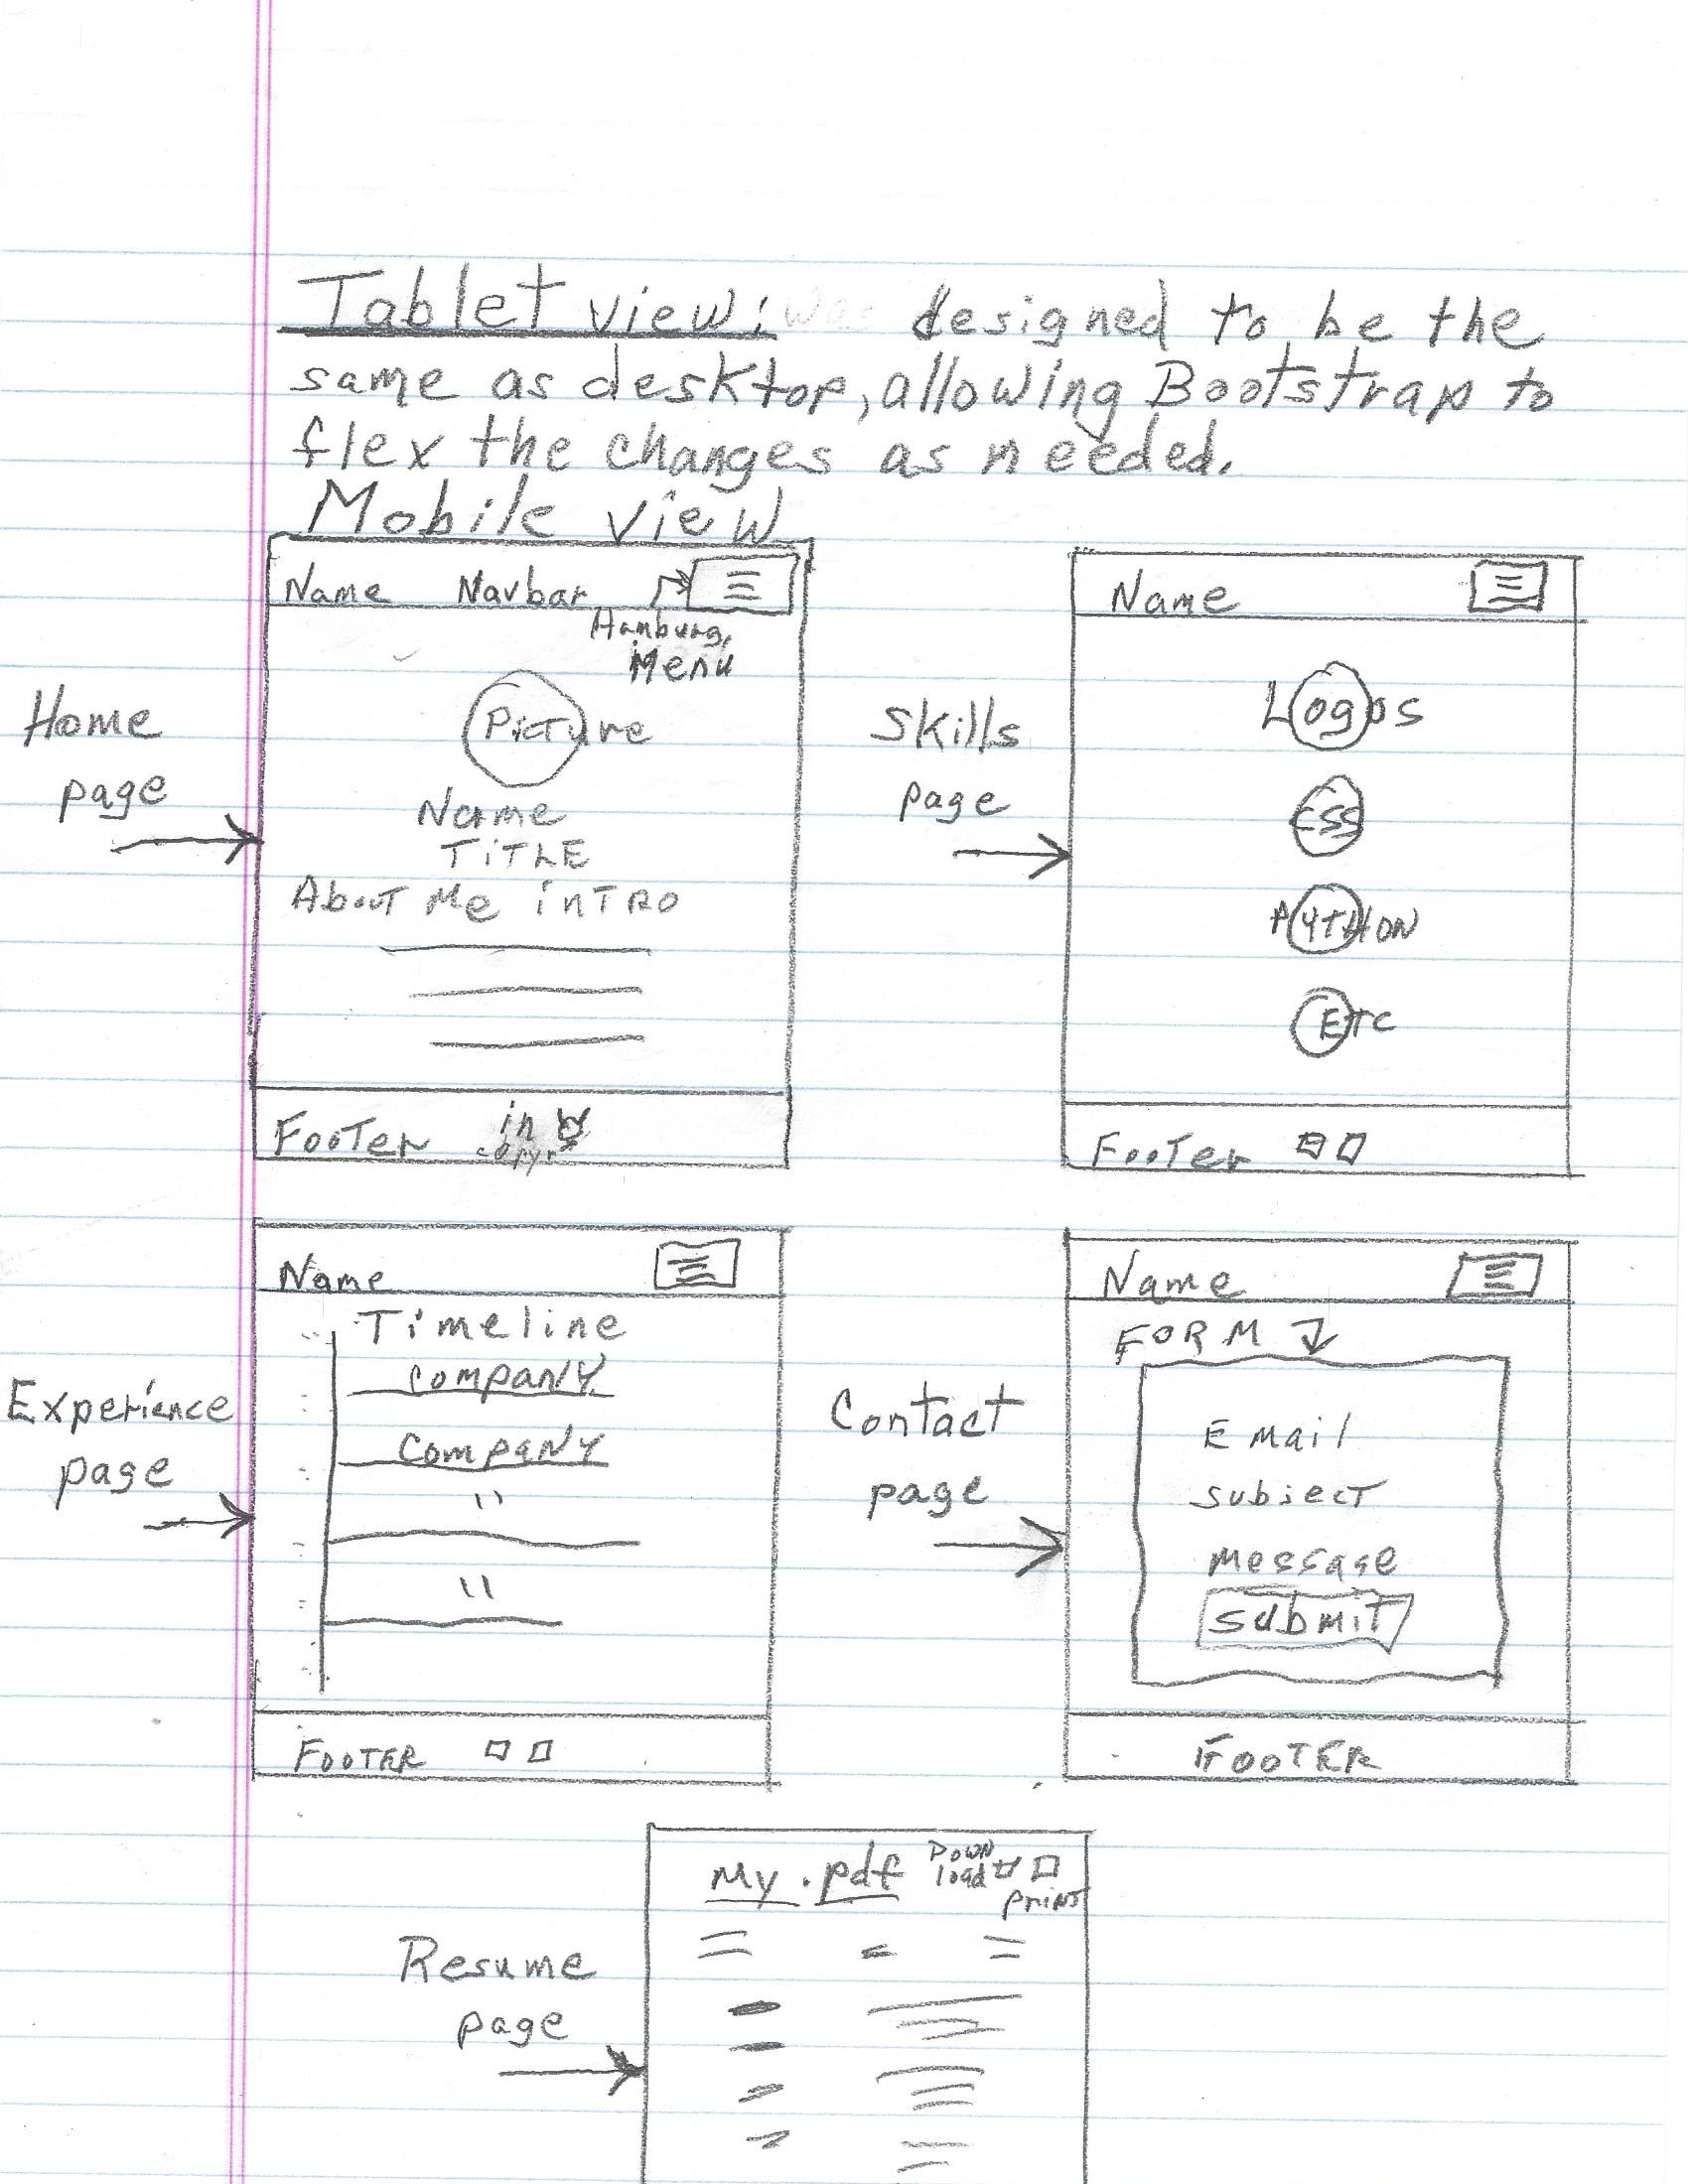 Tablet view: was designed to be the
same as desktop, allowing Bootstrap to
flex the changes as needed.
Mobile view
Home
page
Name Navbar
Hamburg.
Menu
Picture
Name
TITLE
About Me INTRO
Footer in
copyr
Skills
page
Name
Logos
CSS
PYTHON
ETC
Footer
Experience
page
Name
Timeline
Company
Company
"
"
FOOTER
Contact
page
Name
FORM
Email
Subject
Message
Submit
FOOTER
Resume
page
My .pdf Down
load
print